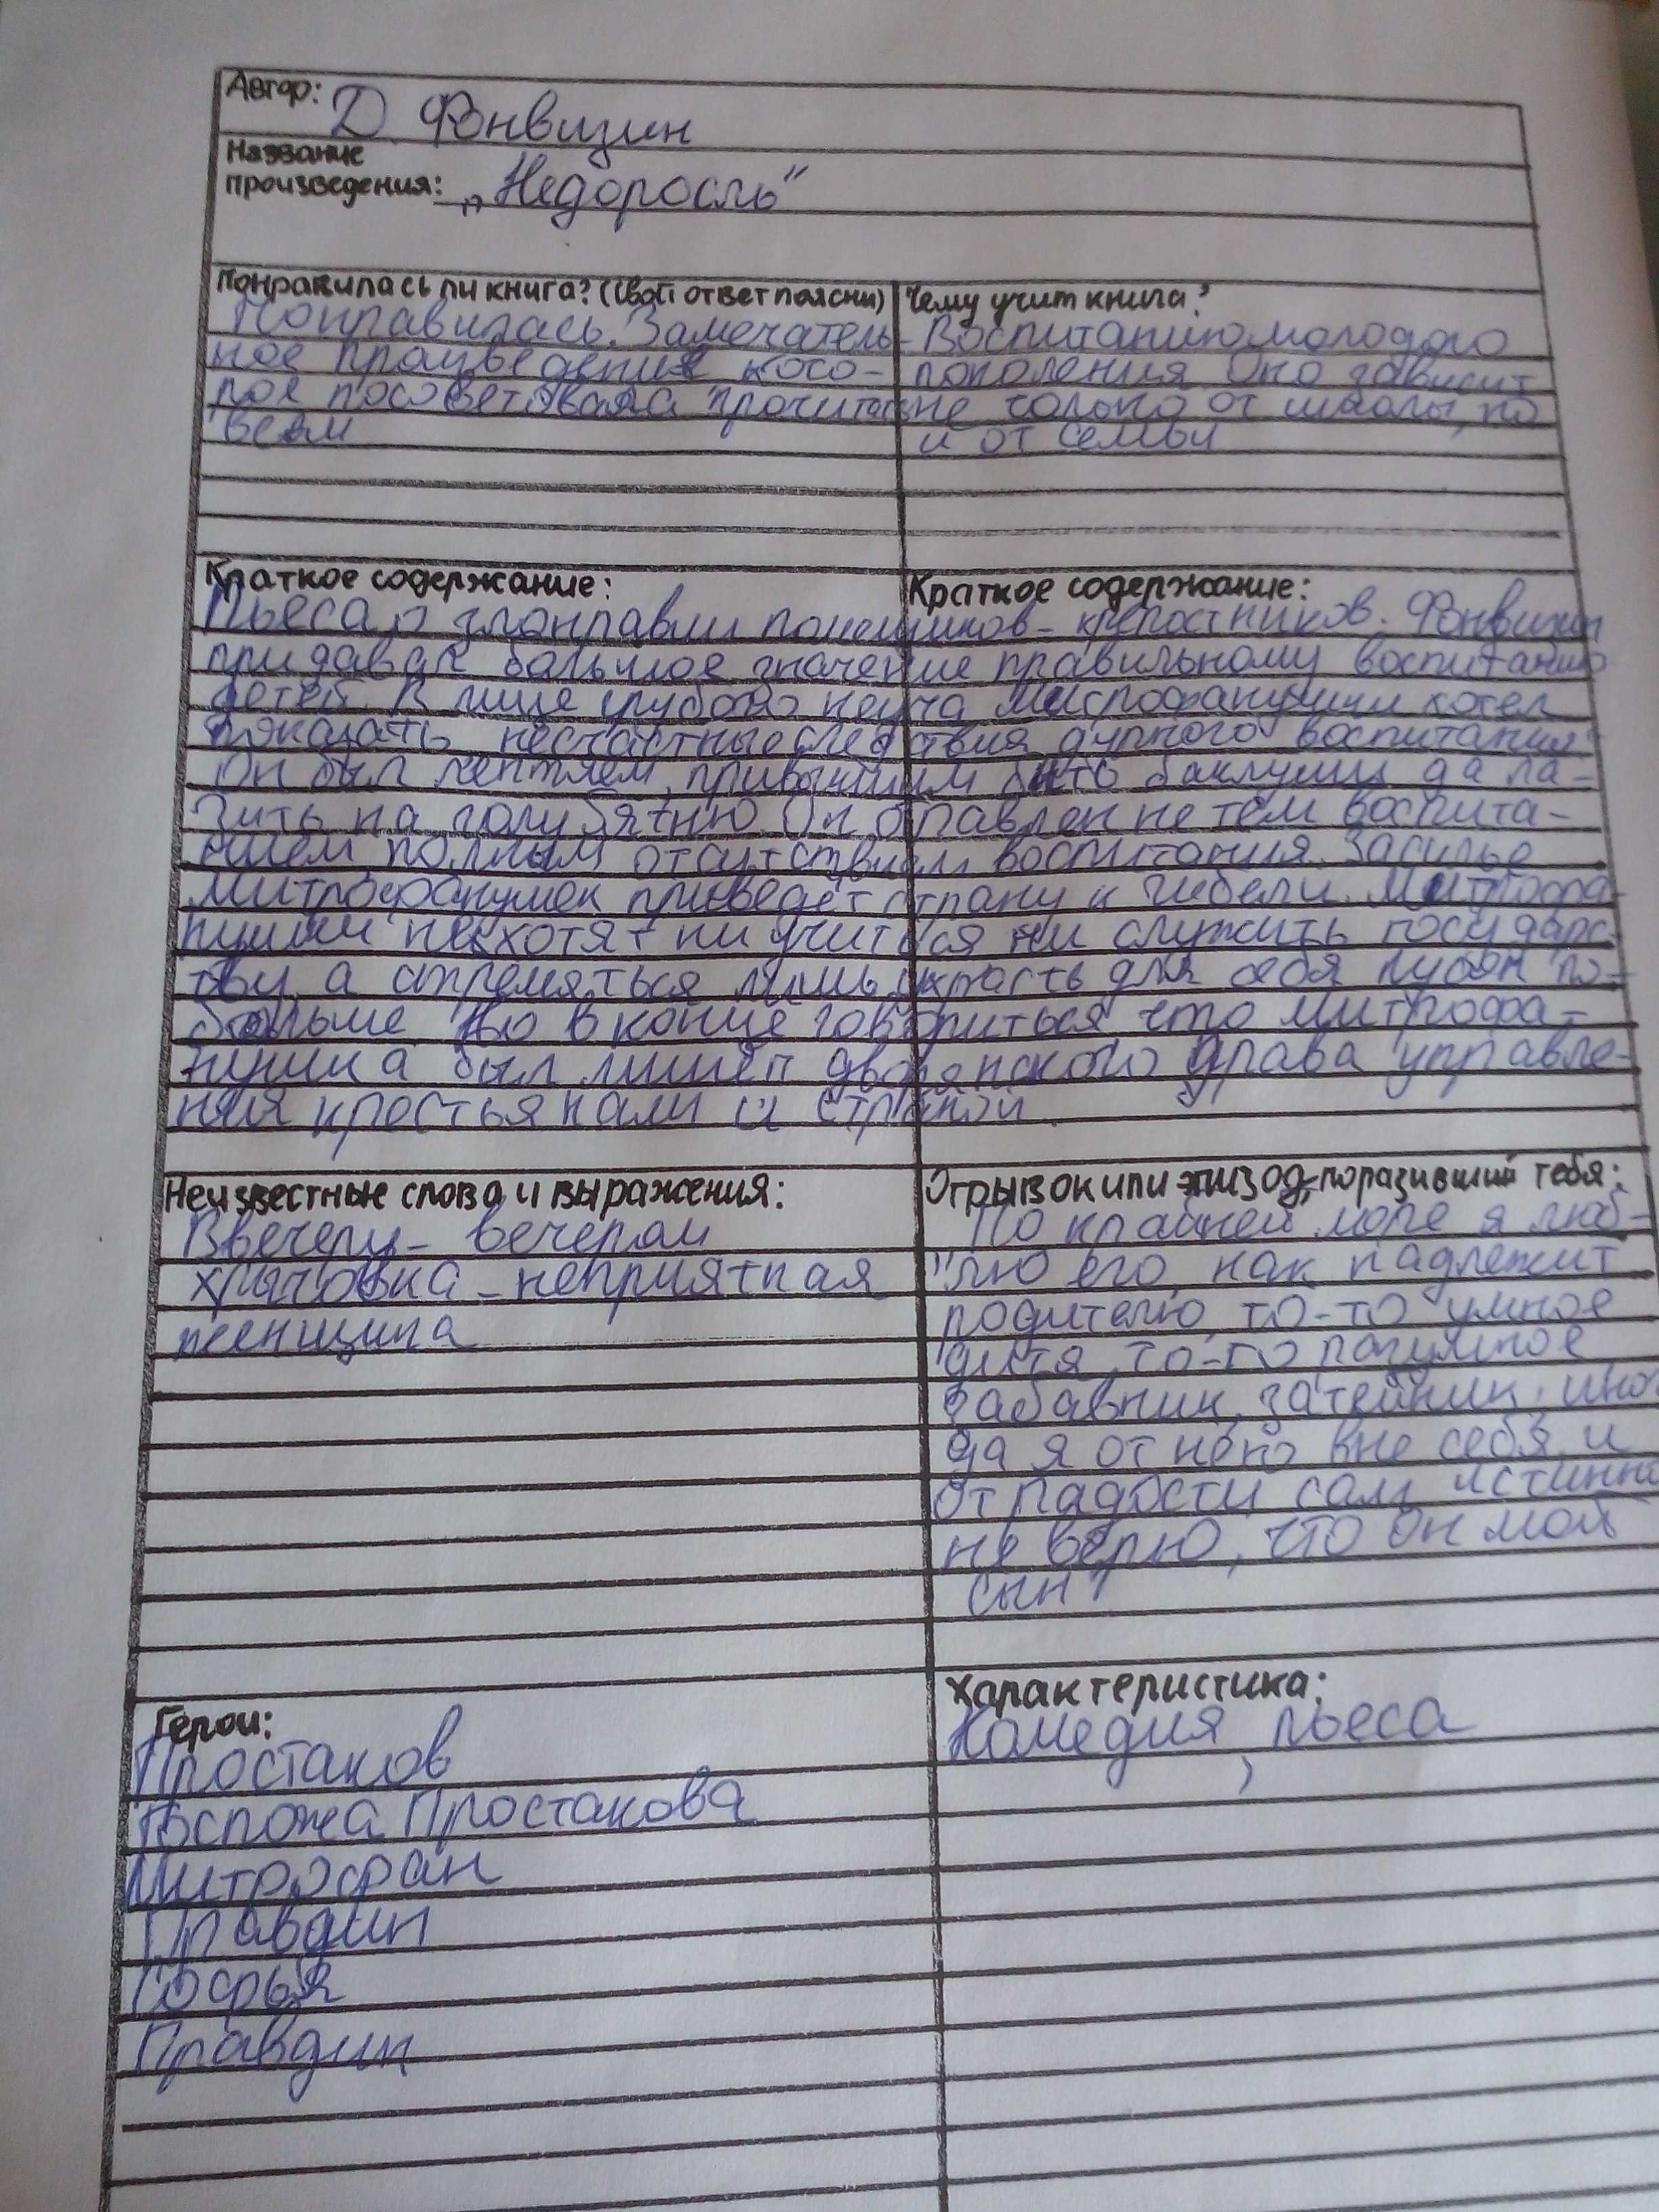 Автор: Д. Фонвизин
Название
произведения: „Недоросль"
Понравилась ли книга? (свой ответ поясни)
Понравилась. Замечатель-
ное произведение кото-
рое посоветовала прочитать
всем
Чему учит книга?
Воспитанию молодого
поколения Оно зависит
не только от школы, но
и от семьи
Краткое содержание: Краткое содержание:
Пьеса о злонравии помещиков-крепостников. Фонвизин
придавал большое значение правильному воспитанию
детей. В лице грубого неуча Митрофанушки хотел
показать несчастные следствия дурного воспитания.
Он был лентяем, привыкшим бить баклуши да ла-
зить на голубятню. Он отравлен не тем воспита-
нием полным отсутствием воспитания. Засилье
Митрофанушек приведёт страну к гибели. Митрофа-
нушки не хотят ни учиться ни служить государс-
тву, а стремяться лишь украсть для себя кусок по-
больше Но в конце говориться что Митрофа-
нушка был лишён дворянского права управле-
ния крестьянами и страной
Неизвестные слова и выражения:
Ввечеру - вечером
хрычовка - неприятная
женщина
Отрывок или эпизод, поразивший тебя:
По крайней мере я люб-
лю его, как надлежит
родителю, то-то умное
дитя, то-то разумное
забавник, затейник, иног
да я от него вне себя и
от радости сам истинно
не верю, что он мой
сын"
Герои:
Простаков
Госпожа Простакова
Митрофан
Правдин
Софья
Правдин
Характеристика:
Комедия, пьеса